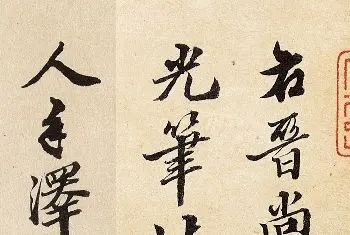 右晉尚
光筆
人手澤